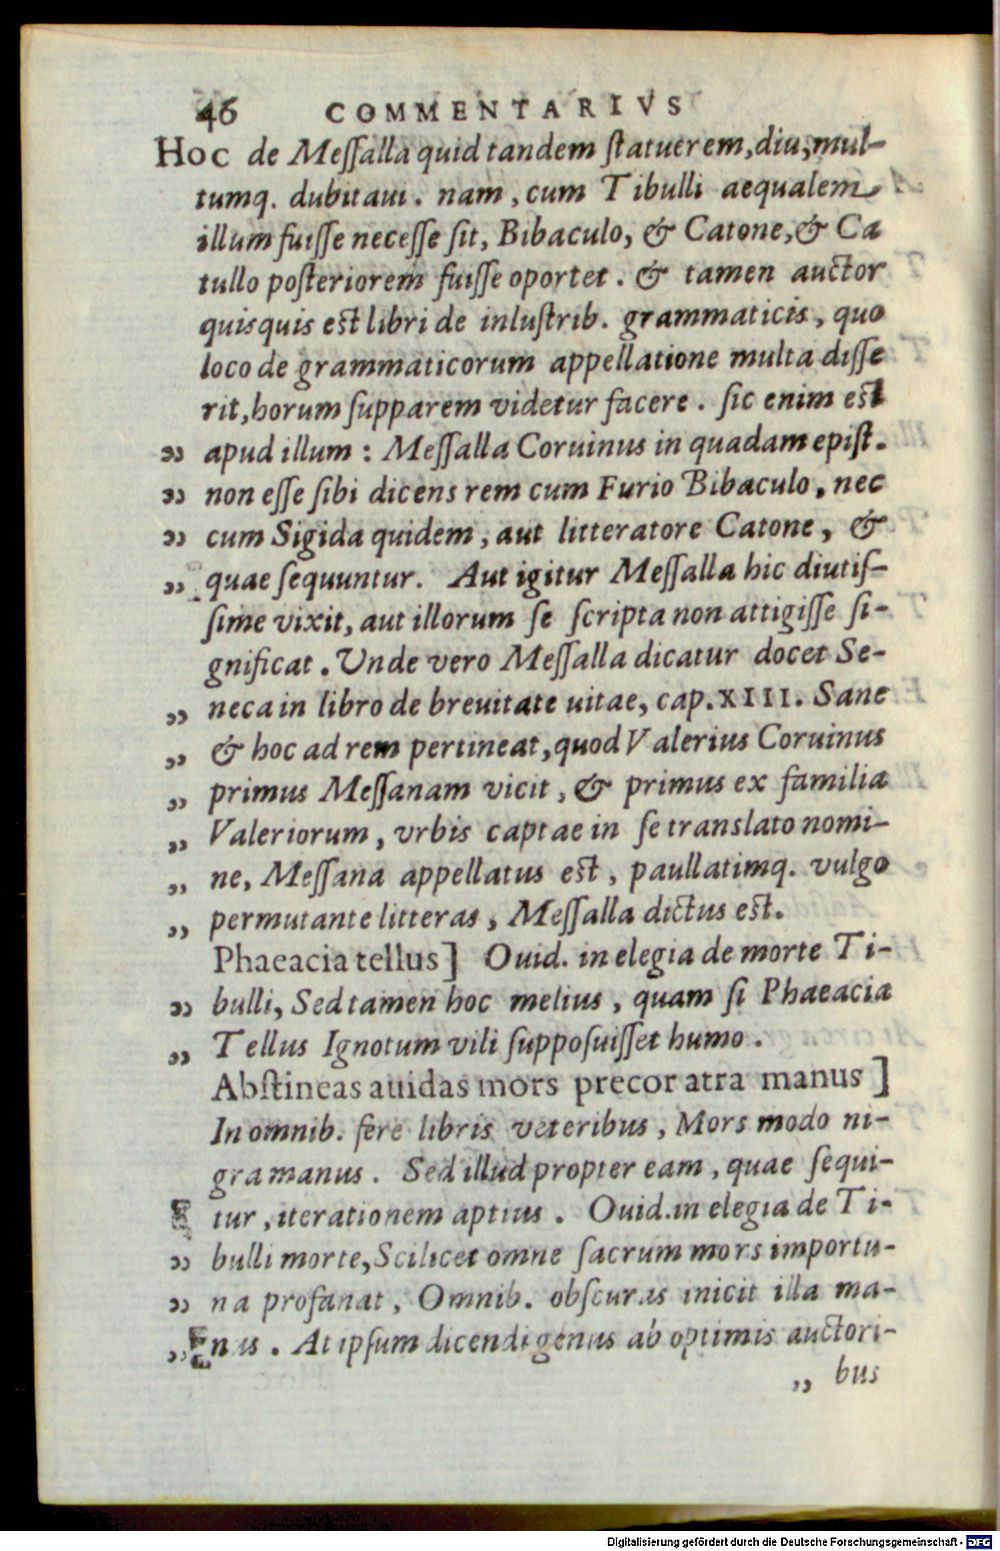 46 COMMENTARIVS
Hoc de Meſſalla quid tandem ſtatuerem, diu, mul-
tumq. dubitaui. nam, cum Tibulli aequalem
illum fuiſſe neceſſe ſit, Bibaculo, & Catone, & Ca
tullo poſteriorem fuiſſe oportet. & tamen auctor
quisquis eſt libri de inluſtrib. grammaticis, quo
loco de grammaticorum appellatione multa diſſe
rit, horum ſupparem videtur facere. ſic enim eſt
„ apud illum : Meſſalla Coruinus in quadam epiſt.
„ non eſſe ſibi dicens rem cum Furio Bibaculo, nec
„ cum Sigida quidem, aut litteratore Catone, &
„ quae ſequuntur. Aut igitur Meſſalla hic diutiſ-
ſime vixit, aut illorum ſe ſcripta non attigiſſe ſi-
gnificat. Vnde vero Meſſalla dicatur docet Se-
„ neca in libro de breuitate uitae, cap. XIII. Sane
„ & hoc ad rem pertineat, quod Valerius Coruinus
„ primus Meſſanam vicit, & primus ex familia
„ Valeriorum, vrbis captae in ſe translato nomi-
„ ne, Meſſana appellatus eſt, paullatimq. vulgo
„ permutante litteras, Meſſalla dictus eſt.
Phaeacia tellus] Ouid. in elegia de morte Ti-
„ bulli, Sed tamen hoc melius, quam ſi Phaeacia
„ Tellus Ignotum vili ſuppoſuiſſet humo.
Abſtineas auidas mors precor atra manus]
In omnib. fere libris veteribus, Mors modo ni-
gra manus. Sed illud propter eam, quae ſequi-
tur, iterationem aptius. Ouid. in elegia de Ti-
„ bulli morte, Scilicet omne ſacrum mors importu-
„ na profanat, Omnib. obſcuras inicit illa ma-
„ nus. At ipſum dicendi genus ab optimis auctori-
„ bus
Digitalisierung gefördert durch die Deutsche Forschungsgemeinschaft - DFG